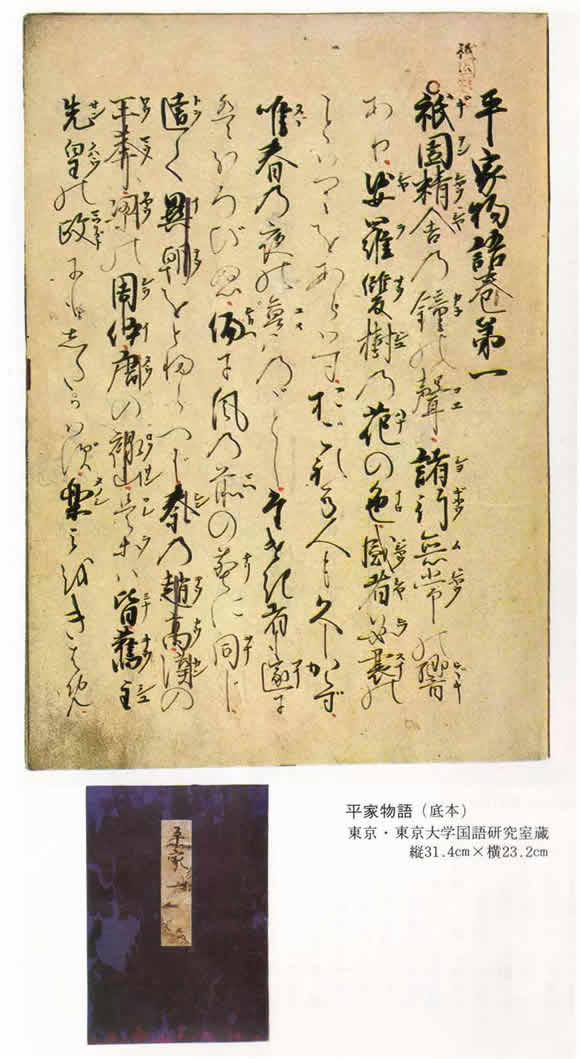 祇園精舎
平家物語巻第一
祇園精舎の鐘の聲諸行無常の響
あり娑羅雙樹の花の色盛者必衰の
ことはりをあらはすおごれる人も久しからず
唯春の夜の夢のごとしたけき者も遂に
はほろびぬ偏に風の前の塵に同じ
遠く異朝をとぶらへば秦の趙高漢の
王莽梁の周伊唐の禄山是等は皆舊主
先皇の政にもしたがはず楽みをきはめ
平家
平家物語（底本）
東京・東京大学国語研究室蔵
縦31.4cm×横23.2cm